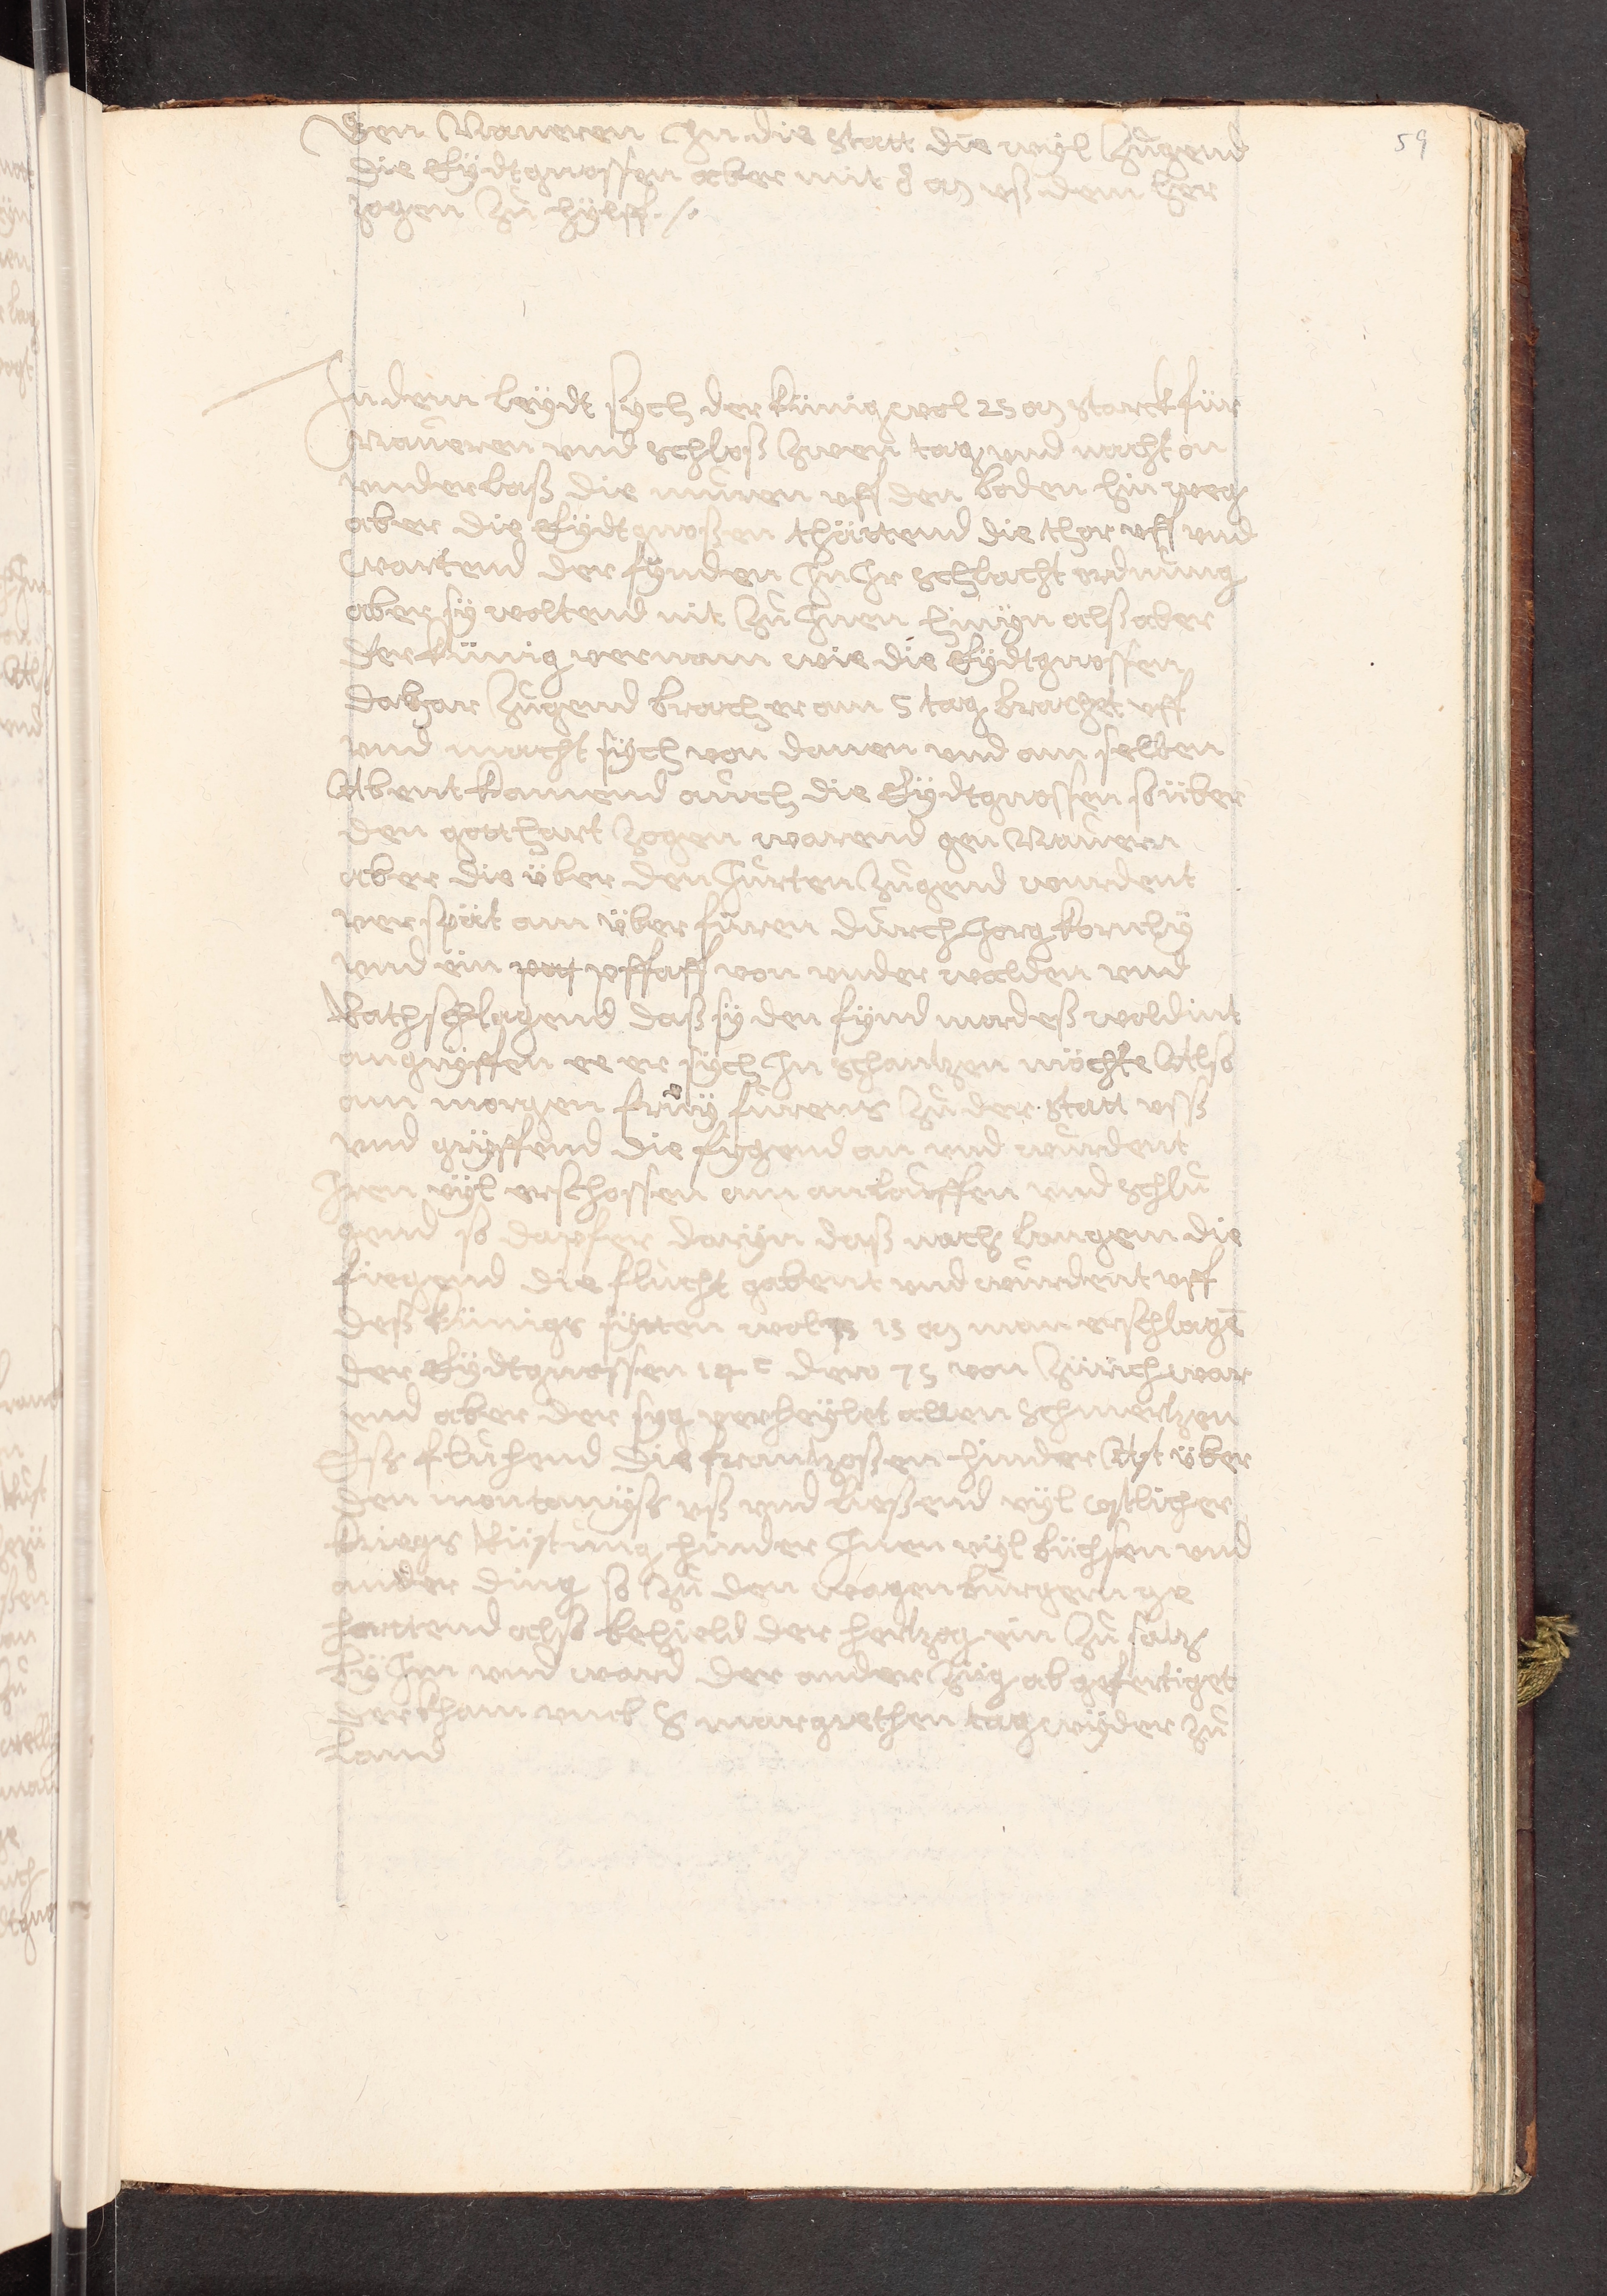 59
Gen Naueren In die Statt die wyl Zugend
die Eydtgnossen aber mit 8 M uß dem Her
zogen Zů hylff ./.
In dem leydt sych der Künig wol 25 M starck für
Naueren und schloß Zwen tag und nacht on
underlaß die muren uff den boden hin weg
aber die Eydtgnoßen thättend die thor uff und
Wartend der fynden In Ir schlacht ordnung
aber sy woltend nit Zů Inen hinyn alß aber
der künig vernam wie die Eydtgnossen
dahar Zugend brach er am 5 tag brachet uff
und macht sych von danen und am selben
Abent kamend auch die Eydtgnossen so über
den gotthart Zogen warend gen Nauern
aber die über den Jurten Zugend wurdent
verspät am überfüren durch Jorg
und ein pfaff von underwalden und
Rathschlagend daß sy den fynd mordeß woldint
angryffen ee er sych In schantzen möchte Also
am morgen fruy furens Zů der Statt uss
und gryffend die fygend an und wurdent
Iren vyl erschossen am anlauffen und schlů
gend so dapfer daryn daß nach langem die
fiegend die flucht gabent und wurdent uff
deß künigs sytten wol 15 M man erschlagē
der Eydtgnossen 14 c dero 75 von Zürich war
und aber der syg verheylet allen Schmertzen
Eß fluhend die frantzoßen hinder Ast über
den montanyß uß und ließend vyl costlicher
kriegs Rüstung hinder Inen vyl büchsen und
ander ding so Zů den wagenburgen ge
horttend also behield der hertzog ein Zů satz
by Im und ward der ander Züg abgefertiget
der kham umb S margrethen tag wyder Zů
Land